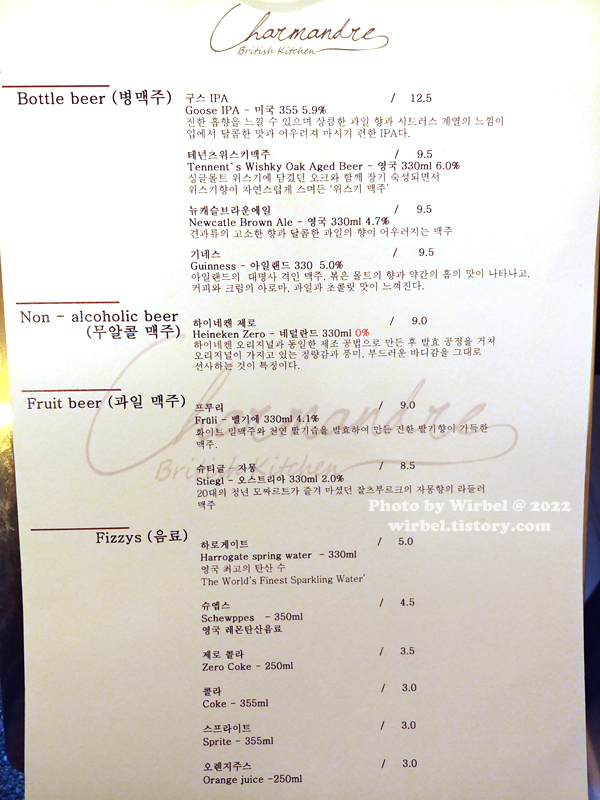 Charmandre
British Kitchen
Bottle beer (병맥주) 구스 IPA / 12.5
Goose IPA - 미국 355 5.9%
진한 홉향을 느낄 수 있으며 상큼한 과일 향과 시트러스 계열의 느낌이
입에서 달콤한 맛과 어우려져 마시기 편한 IPA다.
테넌츠위스키맥주 / 9.5
Tennent`s Wishky Oak Aged Beer - 영국 330ml 6.0%
싱글몰트 위스키에 담겼던 오크와 함께 장기 숙성되면서
위스키향이 자연스럽게 스며든 '위스키 맥주'
뉴캐슬브라운에일 / 9.5
Newcatle Brown Ale - 영국 330ml 4.7%
견과류의 고소한 향과 달콤한 과일의 향이 어우러지는 맥주
기네스 / 9.5
Guinness - 아일랜드 330 5.0%
아일랜드의 대명사 격인 맥주. 볶은 몰트의 향과 약간의 홉의 맛이 나타나고,
커피와 크림의 아로마, 과일과 초콜릿 맛이 느껴진다.
Non - alcoholic beer
(무알콜 맥주)
하이네켄 제로 / 9.0
Heineken Zero - 네덜란드 330ml 0%
하이네켄 오리지널과 동일한 제조 공법으로 만든 후 발효 공정을 거쳐
오리지널이 가지고 있는 청량감과 풍미, 부드러운 바디감을 그대로
선사하는 것이 특징이다.
Fruit beer (과일 맥주) 프루리 / 9.0
Früli - 벨기에 330ml 4.1%
화이트 밀맥주와 천연 딸기즙을 발효하여 만든 진한 딸기향이 가득한
맥주.
Charmandre
British Kitchen
슈티글 - 자몽 / 8.5
Stiegl - 오스트리아 330ml 2.0%
20대의 청년 모짜르트가 즐겨 마셨던 잘츠부르크의 자몽향의 라들러
맥주
Photo by Wirbel @ 2022
wirbel.tistory.com
Fizzys (음료) 하로게이트 / 5.0
Harrogate spring water - 330ml
영국 최고의 탄산 수
The World's Finest Sparkling Water'
슈엡스 / 4.5
Schewppes - 350ml
영국 레몬탄산음료
제로 콜라 / 3.5
Zero Coke - 250ml
콜라 / 3.0
Coke - 355ml
스프라이트 / 3.0
Sprite - 355ml
오렌지주스 / 3.0
Orange juice -250ml